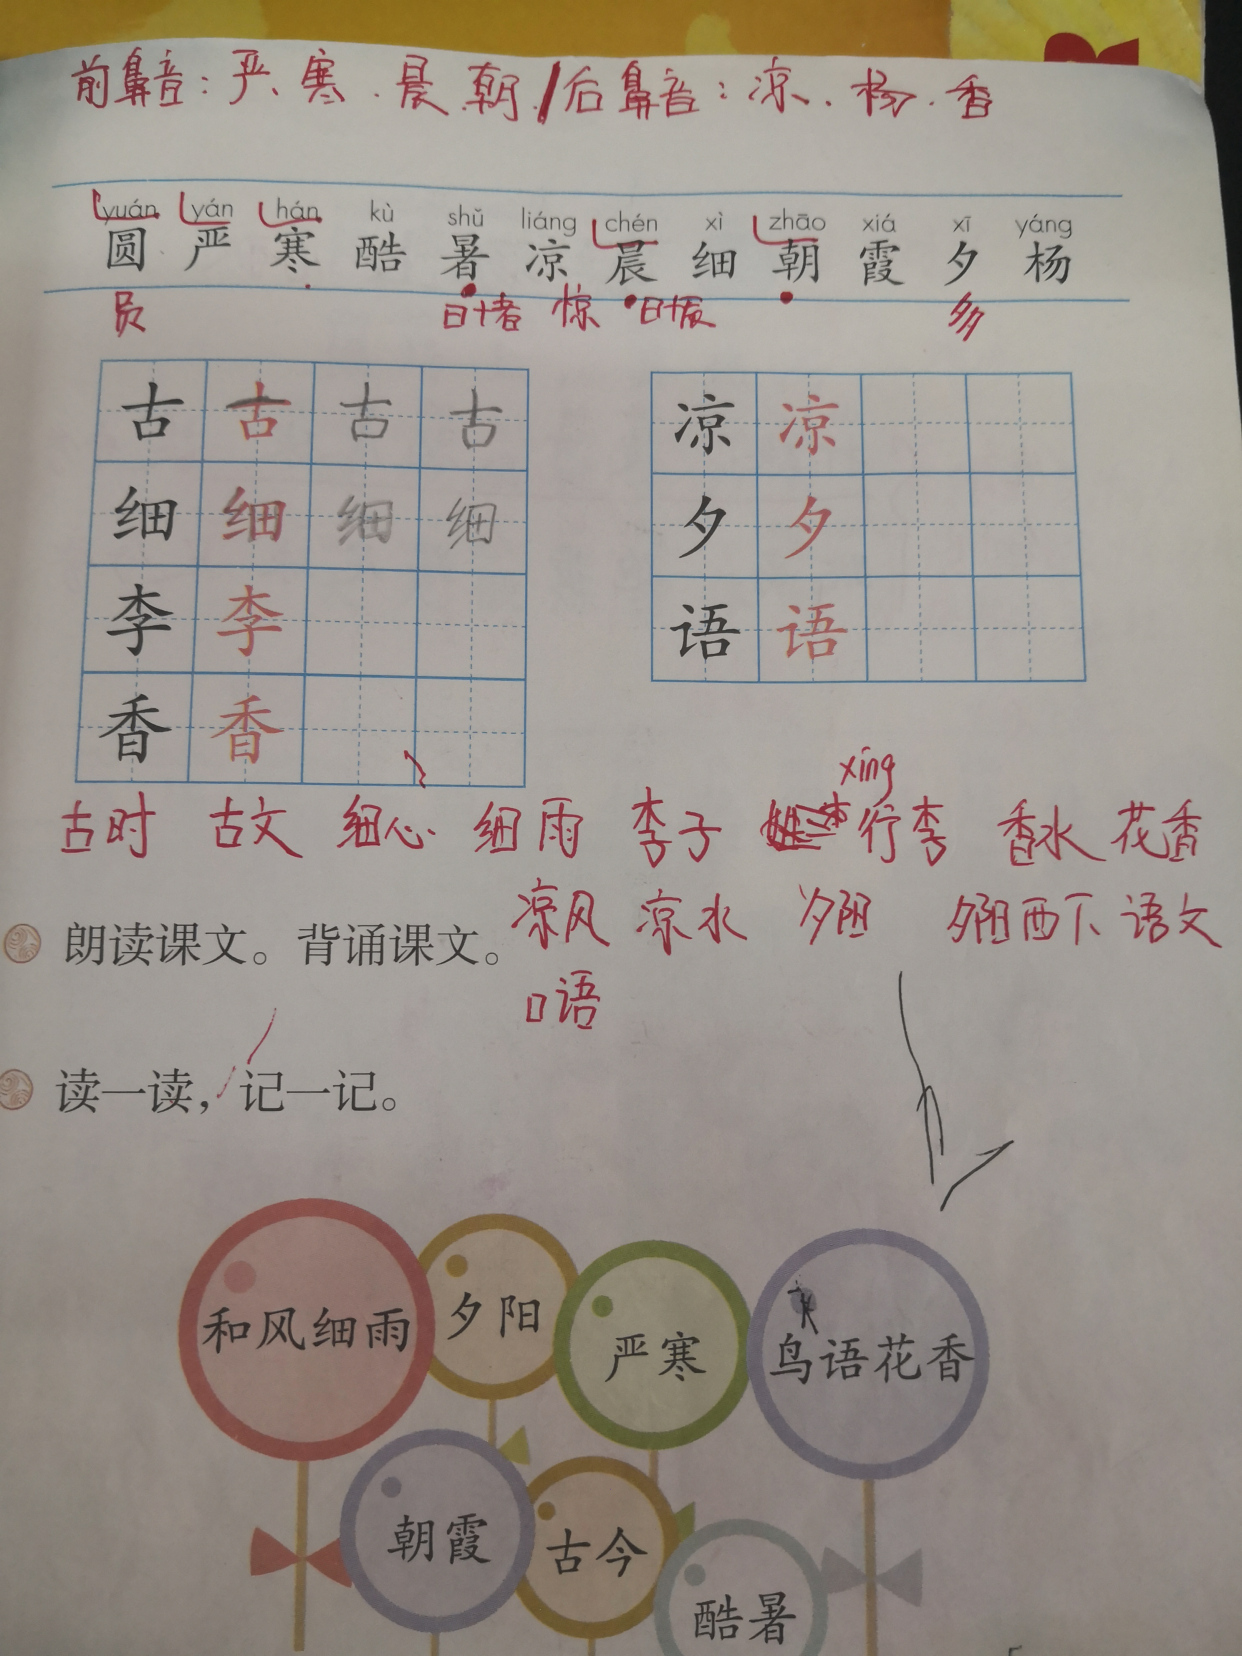 前鼻音：严、寒、晨、朝、/后鼻音：凉、杨、香
yuán yán hán kù shǔ liáng chén xì zhāo xiá xī yáng
圆 严 寒 酷 暑 凉 晨 细 朝 霞 夕 杨
员 日十者 惊 日十辰 多
古 古 古 古 凉 凉
细 细 细 细 夕 夕
李 李 语 语
香 香
xíng
古时 古文 细心 细雨 李子 行李 香水 花香
凉风 凉水 夕阳 夕阳西下 语文
朗读课文。背诵课文。
口语
读一读，记一记。
和风细雨 夕阳 严寒 鸟语花香
朝霞 古今 酷暑